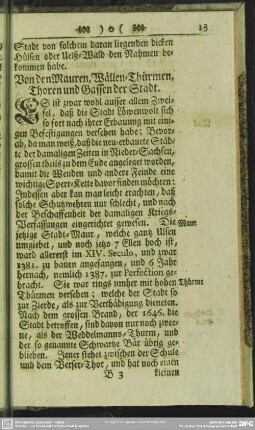 )o( 13
Stadt von solchem daran liegenden dicken
Hülsen oder Uelß-Wald den Nahmen be-
kommen habe.
Von den Mauren, Wällen, Thürmen,
Thoren und Gassen der Stadt.
ES ist zwar wohl ausser allem Zwei-
fel, daß die Stadt Löwenwolt sich
so fort nach ihrer Erbauung mit eini-
gen Befestigungen versehen habe; Bevor-
ab, da man weiß, daß die neu-erbauete Städ-
te der damaligen Zeiten in Nieder-Sachsen,
grossen theils zu dem Ende angeleget worden,
damit die Wenden und andere Feinde eine
wichtige Sperr-Kette davor finden möchten:
Indessen aber kan man leicht erachten, daß
solche Schutzwehren nur schlecht, und nach
der Beschaffenheit der damaligen Kriegs-
Verfassungen eingerichtet gewesen. Die Maur
jetzige Stadt-Maur, welche gantz Ulsen
umgiebet, und noch jetzo 7 Ellen hoch ist,
ward allererst im XIV. Seculo, und zwar
1381. zu bauen angefangen, und 6 Jahr
hernach, nemlich 1387. zur Perfection ge-
bracht. Sie war rings umher mit hohen Thürme
Thürmen versehen; welche der Stadt so
zur Zierde, als zur Vertheidigung dieneten.
Nach dem grossen Brand, der 1646. die
Stadt betroffen, sind davon nur noch zwee-
ne, als der Weddelmanns-Thurm, und
der so genannte Schwartze Bär übrig ge-
blieben. Jener stehet zwischen der Schule
und dem Verser-Thor, und hat noch einen
B 3 kleinen